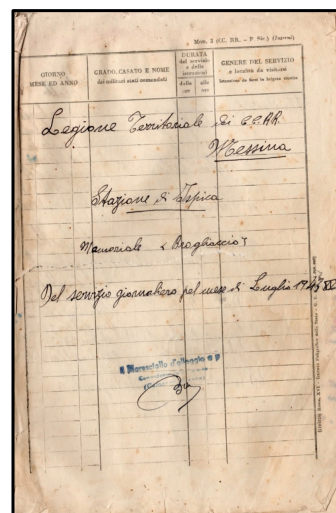 Mod. 2 (CC. RR. - P. Sic.) (Interni)
GIORNO
MESE ED ANNO
GRADO, CASATO E NOME
dei militari stati comandati
DURATA
del servizio
o delle
istruzioni
dalle ore
alle ore
GENERE DEL SERVIZIO
e località da visitarsi
Legione Territoriale dei CC.RR.
Messina
Stazione di Ispica
Memoriale
Del servizio giornaliero pel mese di Luglio 1943
Il Maresciallo d'alloggio a p